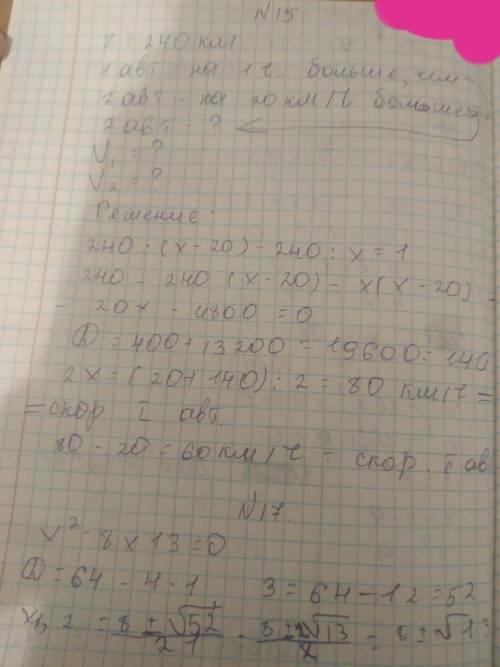 №15.
? = 240 км.
1 авт - на 1 ч. больше, чем
2 авт - на 20 км/ч больше
2 авт - ?
V₁ = ?
V₂ = ?
Решение:
240 : (x - 20) - 240 : x = 1
240 - 240 (x - 20) - x(x - 20)
- 20x - 4800 = 0
D = 400 + 13200 = 19600 = 140
2x = (20 + 140) : 2 = 80 км/ч =
= скор I авт.
80 - 20 = 60 км/ч - скор. I ав
№17.
x² - 8x 13 = 0
D = 64 - 4 · 1 3 = 64 - 12 = 52
x₁,₂ = 8 ± √52 / 21 = 8 ± 2√13 / x = 6 ± √13